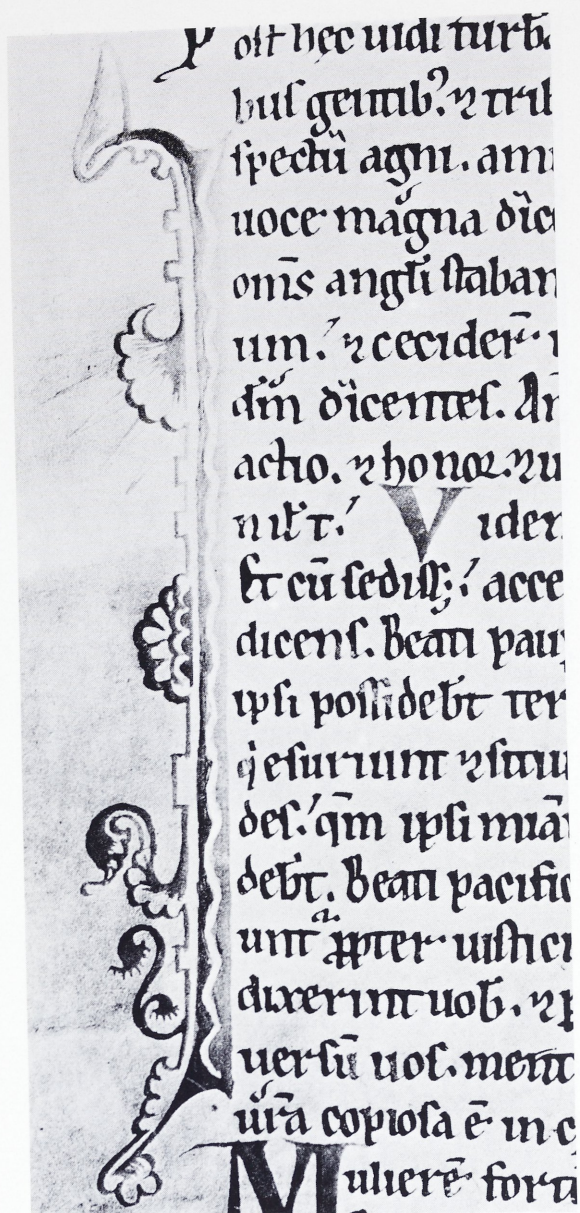 Post hec uidi turb̄
bus gentib;. ⁊ trib
spectū agni. ami
uoce magna dīce
om̄s angłi staban
um. ⁊ cecider̄
dm̄ dicentes. Am
actio. ⁊ honor. ⁊ u
V iden
Et cū sediss;. acce
dicens. Beati pau
ipsi possidebt̄ ter
q̇ esuriunt ⁊ sitiu
des. qm̄ ipsi miā
debt̄. Beati pacific
unt ꝓpter iustici
dixerint uob̄. ⁊ p
uersū uos. ment
ur̄a copiosa ē in c
Mulierē forti